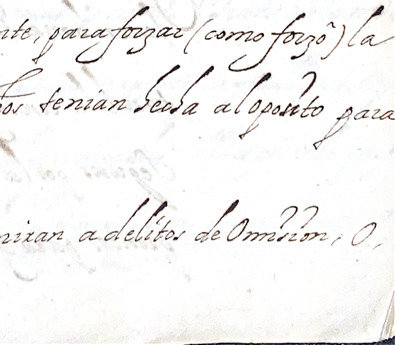 nte, para forzar (como forzó) la
hos tenian hecha al oposito para
miran a delitos de Omision, O,